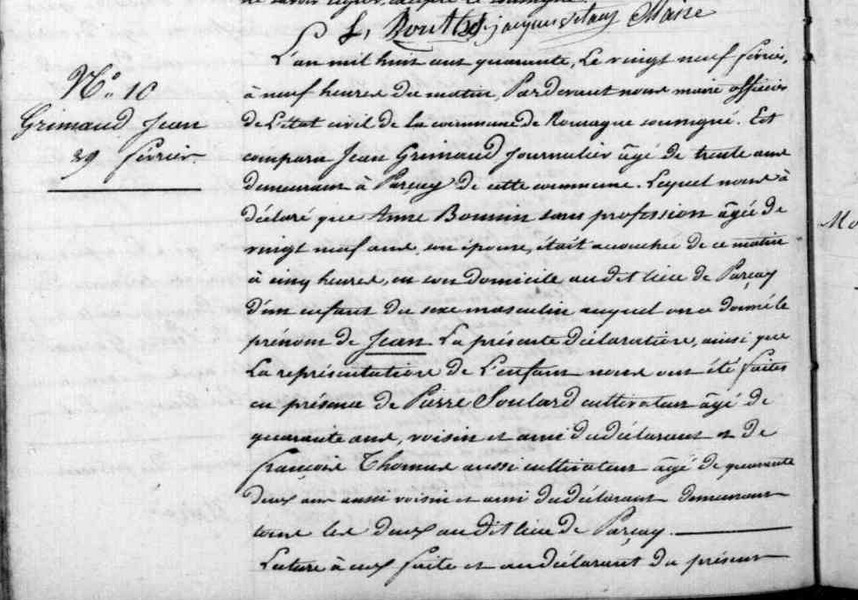 L'an mil huit cent quarante, Le vingt neuf février,
N.° 10
Grimaud Jean
29 février
à neuf heures du matin, Pardevant nous maire officier
de L'état civil de la commune de soussigné. Est
comparu Jean Grimaud Journalier âgé de trente ans
demeurant à Parçay de cette commune. Lequel nous à
déclaré que Anne Bonnin sans profession âgée de
vingt neuf ans, son épouse, était accouchée de ce matin
à cinq heures, en son domicile audit lieu de Parçay
d'un enfant du sexe masculin auquel on a donné le
prénom de Jean La présente déclaration, ainsi que
La représentation de L'enfant nous ont été faites
en présence de Pierre Soulard cultivateur âgé de
quarante ans, voisin et ami du déclarant et de
François Thomas aussi cultivateur âgé de quarante
deux ans aussi voisin et ami du déclarant demeurant
tous les deux audit lieu de Parçay.
Lecture à eux faite et au déclarant du présent